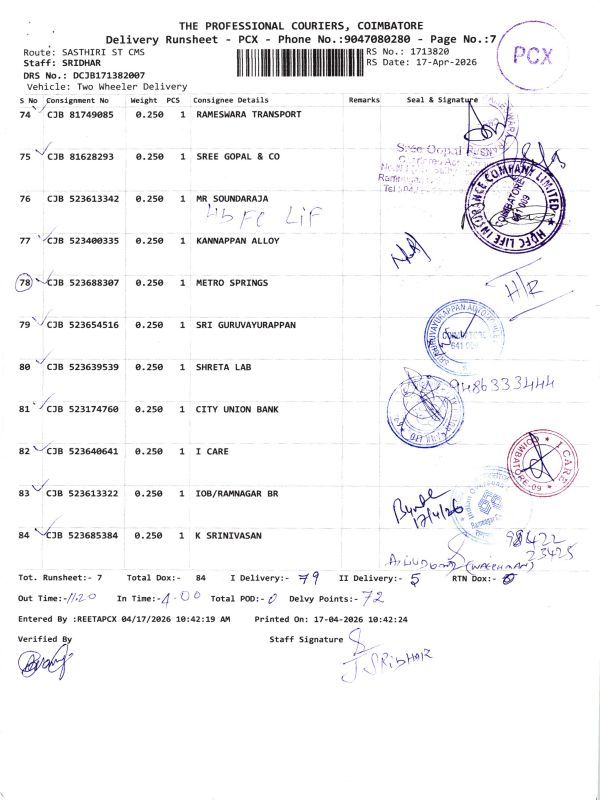 THE PROFESSIONAL COURIERS, COIMBATORE
Delivery Runsheet - PCX - Phone No.:9047080280 - Page No.:7
PCX
Route: SASTHIRI ST CMS
RS No.: 1713820
Staff: SRIDHAR
RS Date: 17-Apr-2026
DRS No.: DCJB171382007
Vehicle: Two Wheeler Delivery
S No Consignment No Weight PCS Consignee Details Remarks Seal & Signature
74 CJB 81749085 0.250 1 RAMESWARA TRANSPORT
75 CJB 81628293 0.250 1 SREE GOPAL & CO
Sree Gopal
HDFC LIFE INSURANCE COMPANY LIMITED
COIMBATORE
641 009
76 CJB 523613342 0.250 1 MR SOUNDARAJA
77 CJB 523400335 0.250 1 KANNAPPAN ALLOY
78 CJB 523688307 0.250 1 METRO SPRINGS
H/R
79 CJB 523654516 0.250 1 SRI GURUVAYURAPPAN
80 CJB 523639539 0.250 1 SHRETA LAB
9486333444
81 CJB 523174760 0.250 1 CITY UNION BANK
82 CJB 523640641 0.250 1 I CARE
I CARE
COIMBATORE-09
83 CJB 523613322 0.250 1 IOB/RAMNAGAR BR
17/4/26
84 CJB 523685384 0.250 1 K SRINIVASAN
98422
23425
(WATCHMAN)
Tot. Runsheet:- 7 Total Dox:- 84 I Delivery:- 79 II Delivery:- 5 RTN Dox:- 0
Out Time:-11.20 In Time:-4.00 Total POD:-0 Delvy Points:- 72
Entered By :REETAPCX 04/17/2026 10:42:19 AM Printed On: 17-04-2026 10:42:24
Verified By Staff Signature
J. SRIDHAR